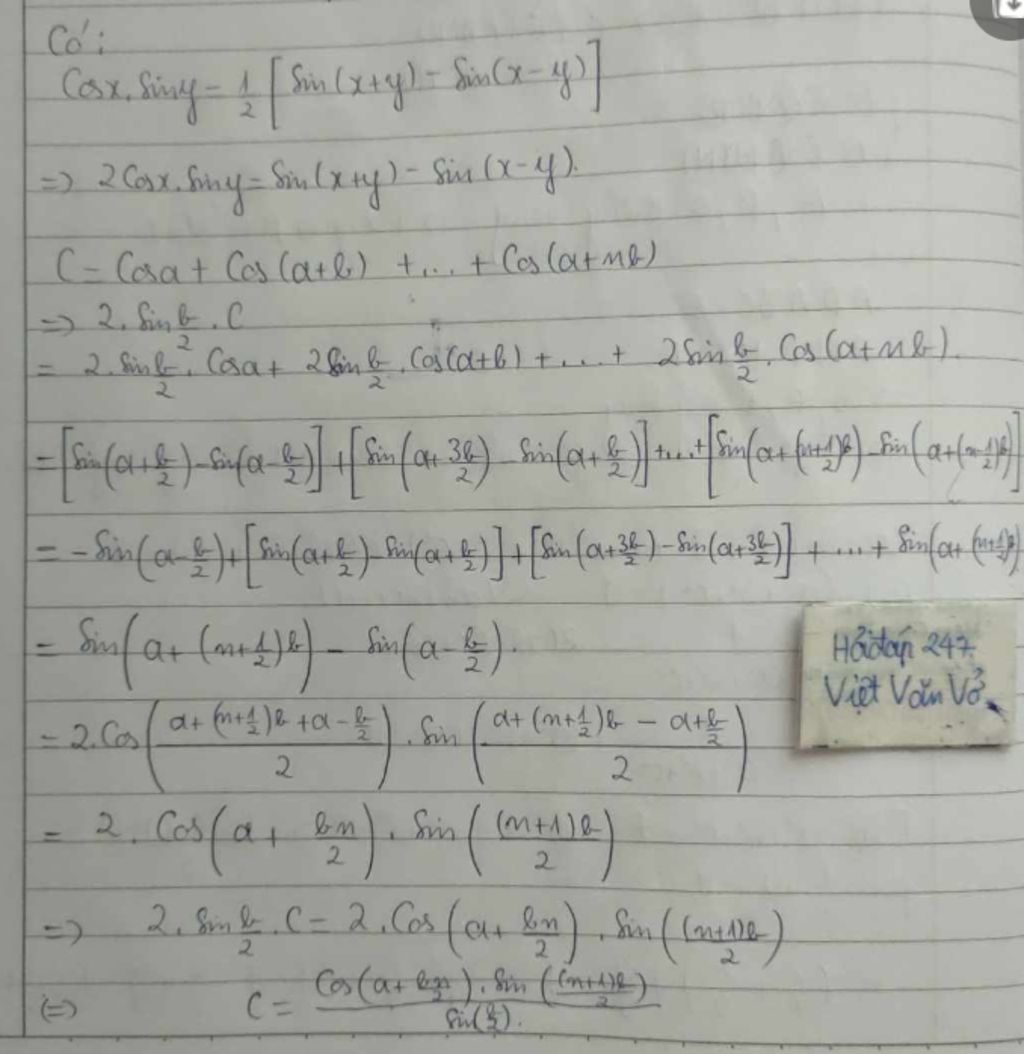 Có:
Cosx.Siny = 1/2 [Sin(x+y) - Sin(x-y)]
=> 2Cosx.Siny = Sin(x+y) - Sin(x-y).
C = Cosa + Cos(a+b) +...+ Cos(a+nb)
=> 2.Sin b/2 . C
= 2.Sin b/2 . Cosa + 2Sin b/2 . Cos(a+b) +...+ 2Sin b/2 . Cos(a+nb).
= [Sin(a+b/2) - Sin(a-b/2)] + [Sin(a+3b/2) - Sin(a+b/2)] +...+ [Sin(a+(n+1/2)b) - Sin(a+(n-1/2)b)]
= -Sin(a-b/2) + [Sin(a+b/2) - Sin(a+b/2)] + [Sin(a+3b/2) - Sin(a+3b/2)] +...+ Sin(a+(n+1/2)b)
= Sin(a+(n+1/2)b) - Sin(a-b/2).
Hỏiđáp 247
Việt Văn Vở
= 2.Cos((a+(n+1/2)b+a-b/2)/2) . Sin((a+(n+1/2)b-a+b/2)/2)
= 2.Cos(a+bn/2).Sin((n+1)b/2)
=> 2.Sin b/2 . C = 2.Cos(a+bn/2).Sin((n+1)b/2)
(=) C = Cos(a+bn/2).Sin((n+1)b/2) / Sin(b/2).